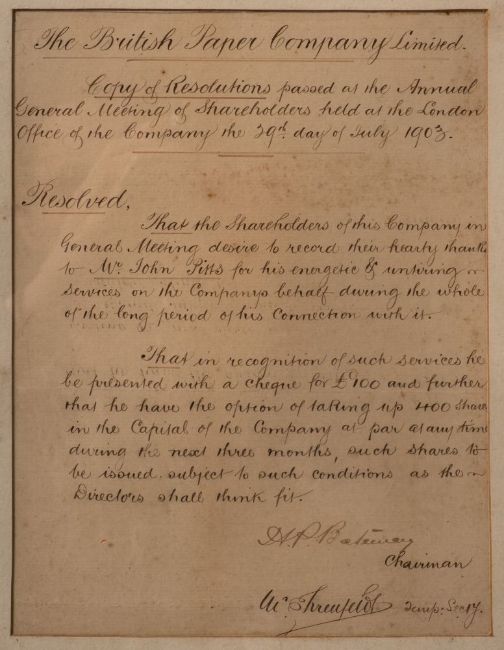 The British Paper Company Limited.
Copy of Resolutions passed at the Annual
General Meeting of Shareholders held at the London
Office of the Company the 29th day of July 1903.
Resolved,
That the Shareholders of this Company in
General Meeting desire to record their hearty thanks
to Mr. John Pitts for his energetic & untiring
services on the Companys behalf during the whole
of the long period of his connection with it.
That in recognition of such services he
be presented with a cheque for £100 and further
that he have the option of taking up 400 Shares
in the Capital of the Company at par at any time
during the next three months, such shares to
be issued subject to such conditions as the
Directors shall think fit.
Bateman
Chairman
Temp. Secy.